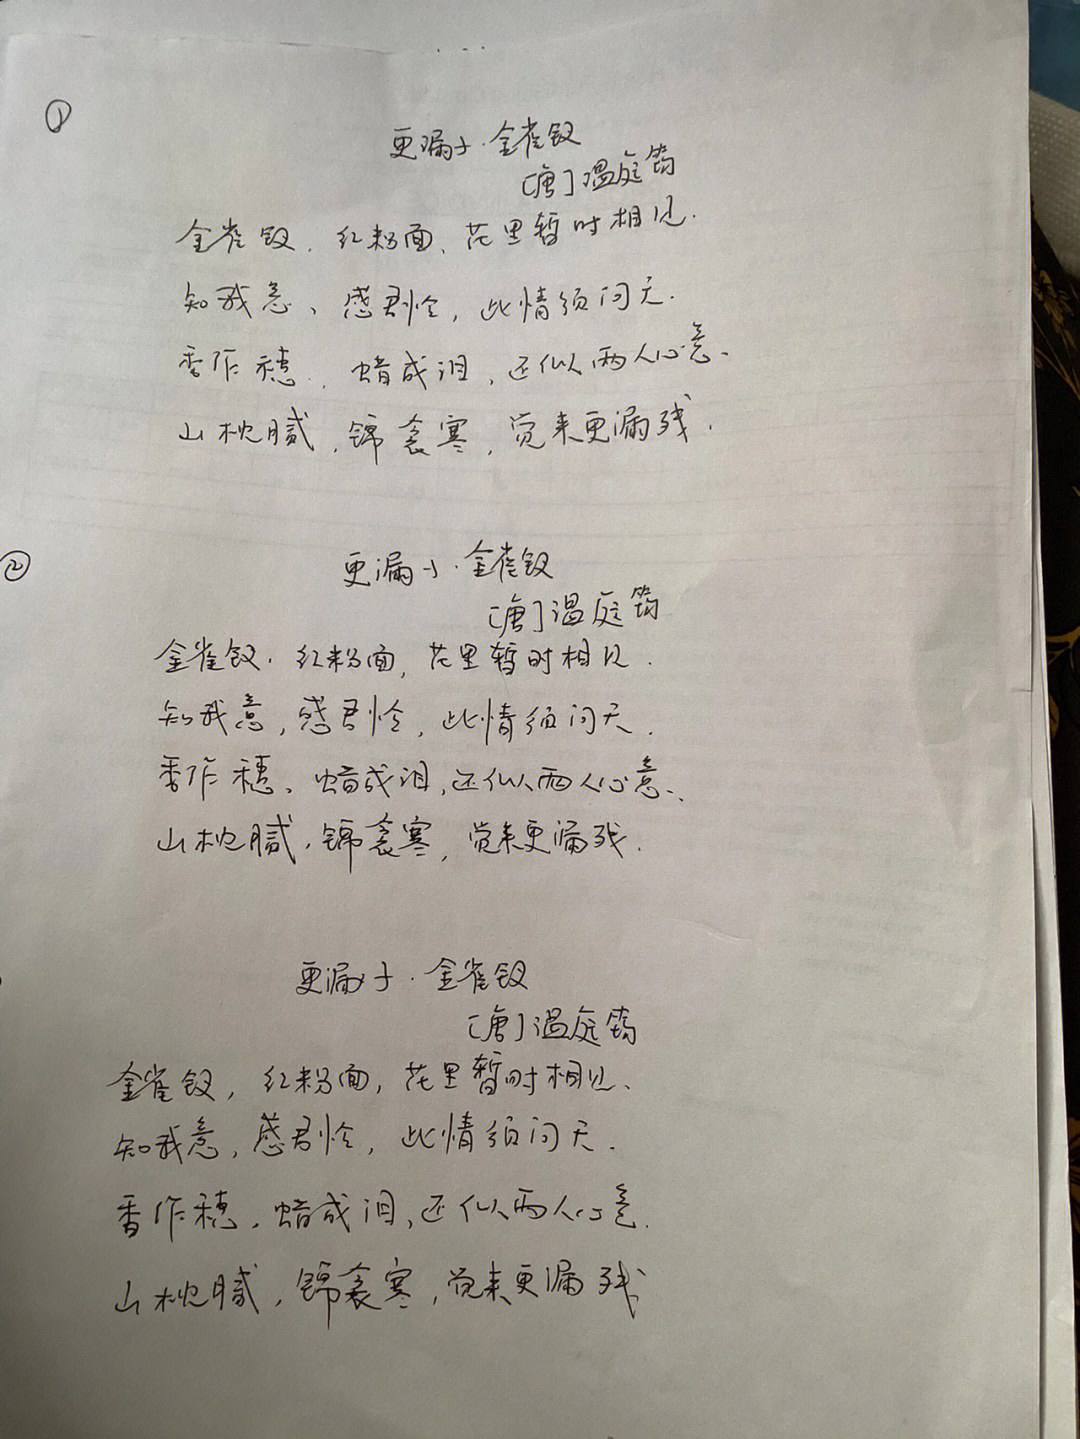 ①
更漏子·金雀钗
[唐]温庭筠
金雀钗,红粉面,花里暂时相见.
知我意、感君怜,此情须问天.
香作穗,蜡成泪,还似两人心意、
山枕腻,锦衾寒,觉来更漏残.
②
更漏子·金雀钗
[唐]温庭筠
金雀钗,红粉面,花里暂时相见.
知我意,感君怜,此情须问天.
香作穗、蜡成泪,还似两人心意、
山枕腻,锦衾寒,觉来更漏残.
更漏子·金雀钗
[唐]温庭筠
金雀钗,红粉面,花里暂时相见、
知我意,感君怜,此情须问天.
香作穗,蜡成泪,还似两人心意.
山枕腻,锦衾寒,觉来更漏残